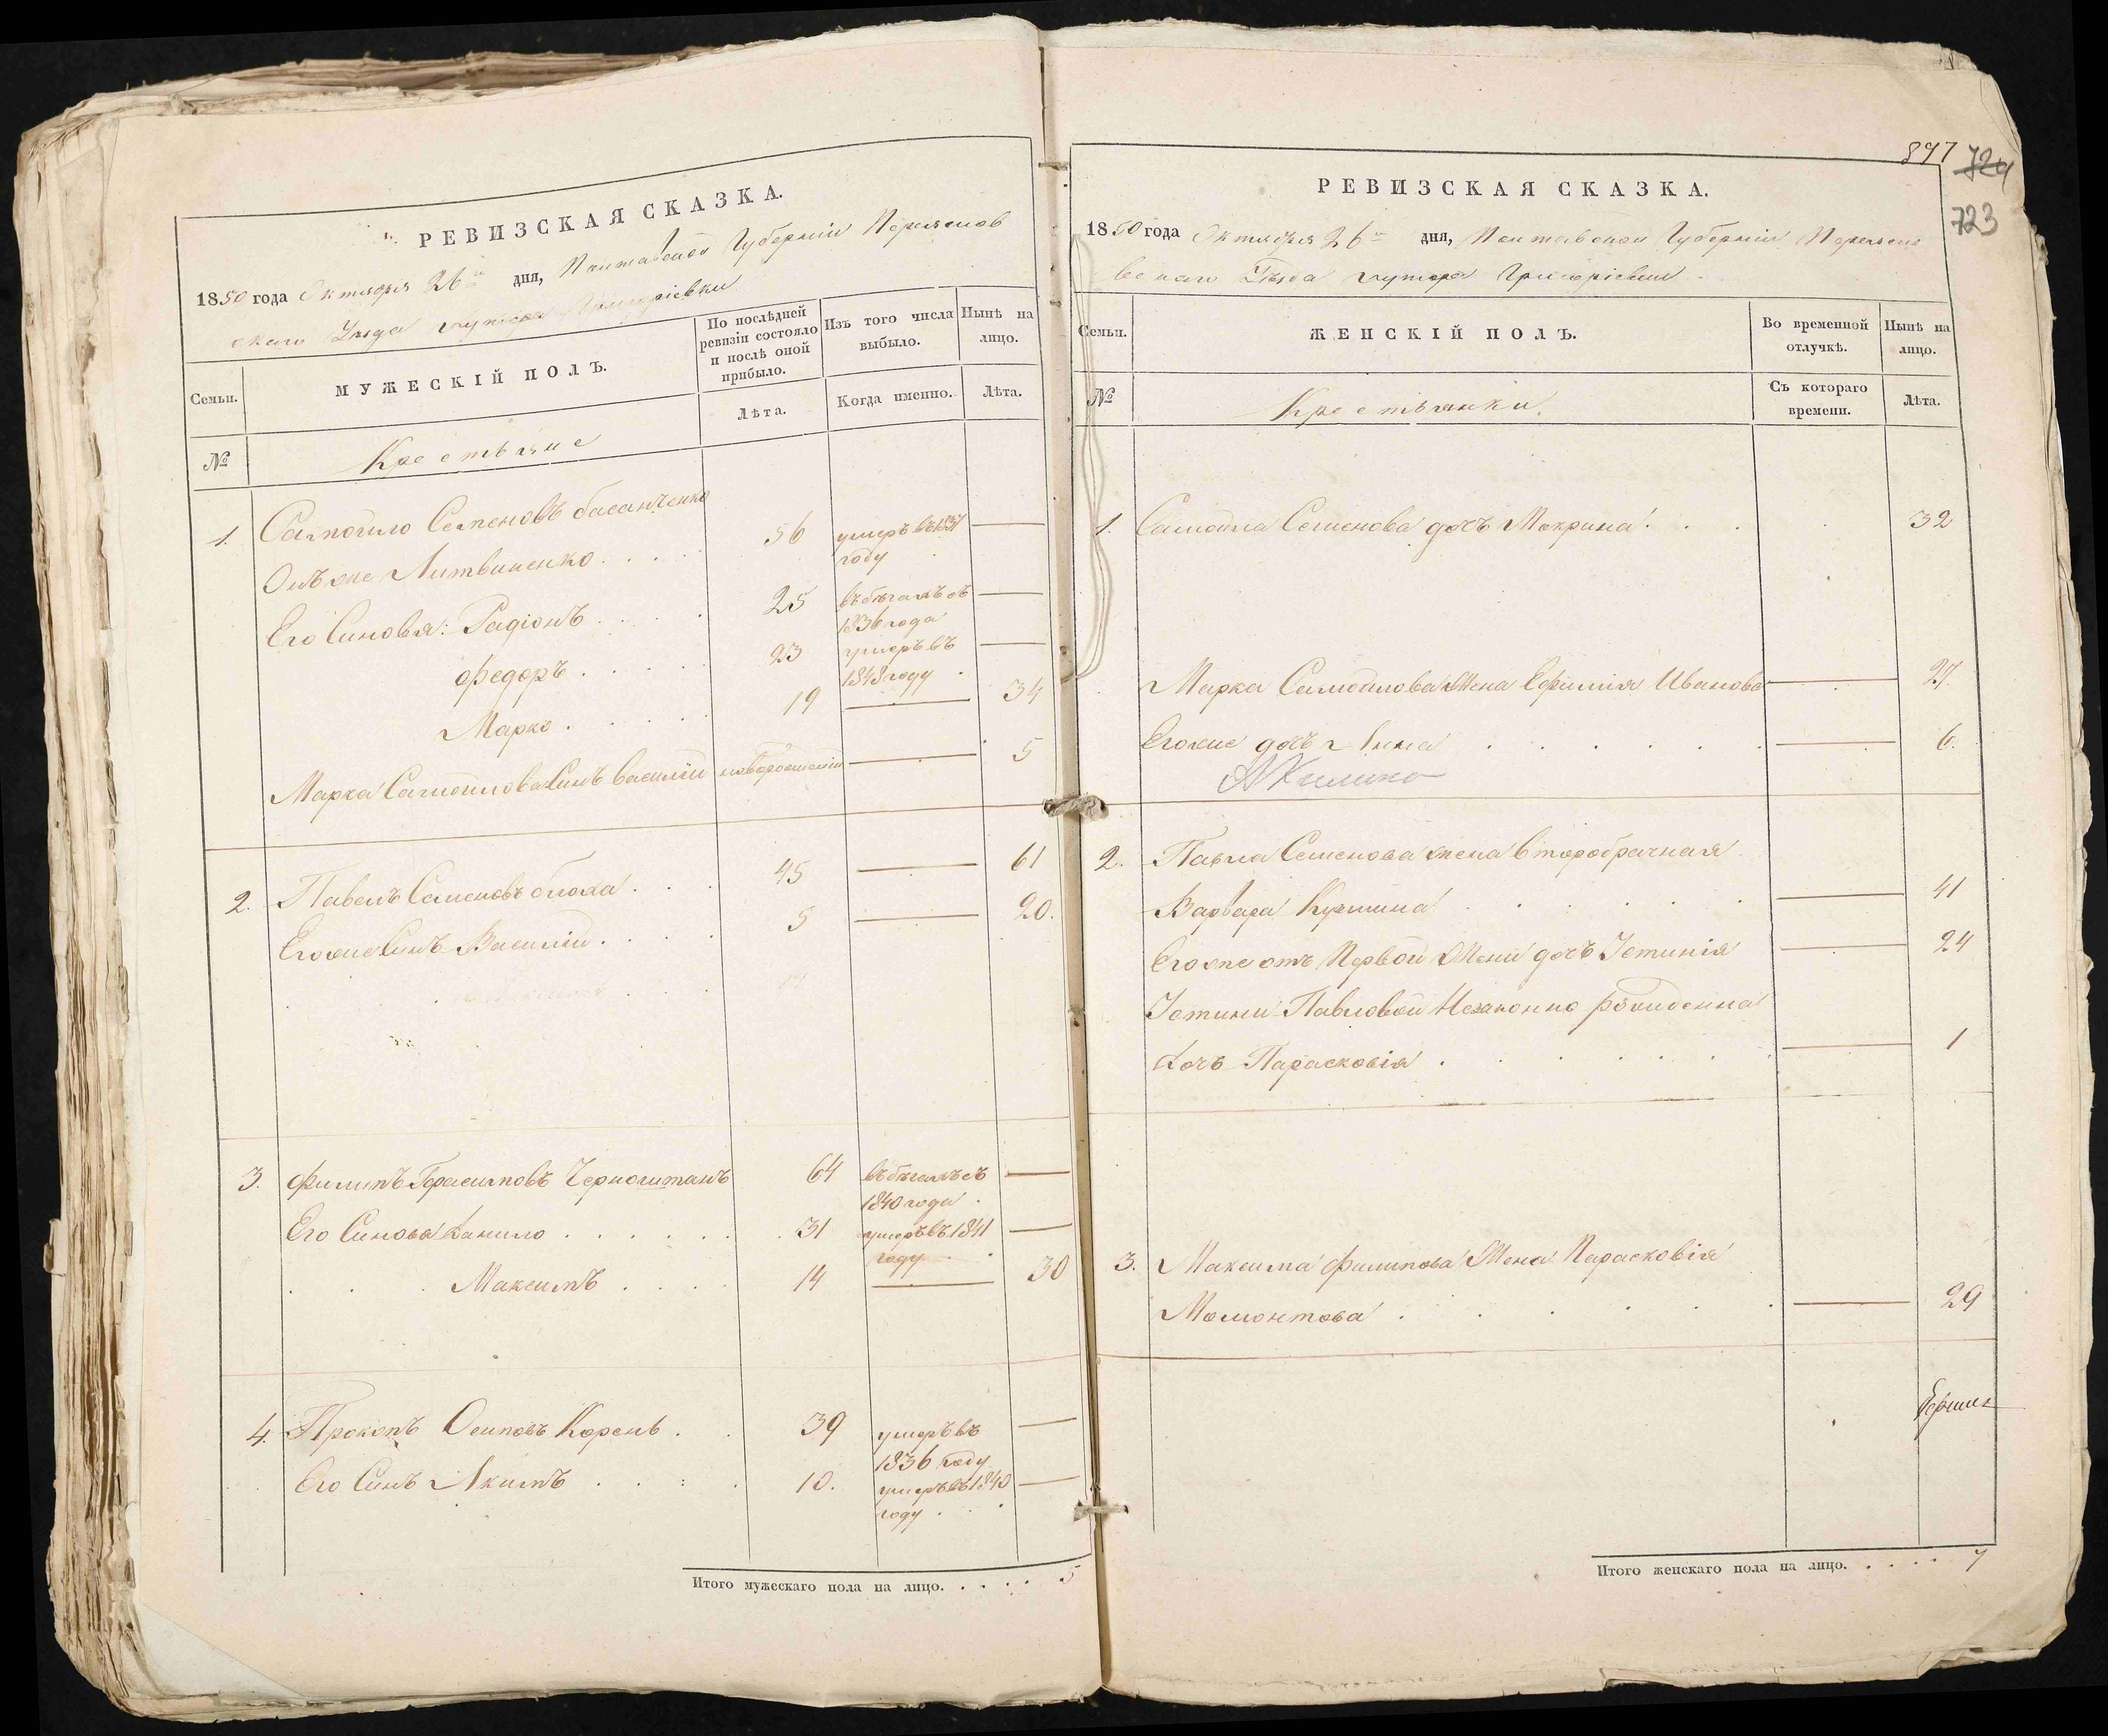 РЕВИЗСКАЯ СКАЗКА.
1850 года Октября 26го дня, Полтавской Губерніи Переяслов
скаго Уезда хутора Григоріевки
Семьи.
МУЖЕСКІЙ ПОЛЪ.
По послѣдней ревизіи состояло и послѣ оной прибыло.
Изъ того числа выбыло.
Нынѣ на лицо.
Лѣта.
Когда именно.
Лѣта.
№
Крестьяне
1. Самойло Семеновъ басанченко
Онъ же Литвиненко . . . . 56 умеръ въ 1837 году —
Его Синовья: Радіонъ . . . . 25 въ бѣгахъ съ 1836 года —
Федоръ . . . . . 23 умеръ въ 1848 году —
Марко . . . . . 19 — 34
Марка Самойлова Синъ Василій новорожденній — 5
2. Павелъ Семеновъ блоха . . . 45 — 61
Его же Синъ Василій . . . . 5 — 20.
3. Филипъ Герасимовъ Черношитанъ 64 въ бѣгахъ съ 1840 года —
Его Синовья Данило . . . . . . 31 умеръ въ 1841 году —
Максимъ . . . . 14 — 30
4. Прокопъ Осиповъ Корень . . 39 умеръ въ 1836 году —
Его Синъ Акимъ . . . . 10. умеръ въ 1840 году —
Итого мужескаго пола на лицо. . . . . 5
897
724
723
РЕВИЗСКАЯ СКАЗКА.
1850 года Октября 26го дня, Полтавской Губерніи Переясло
вскаго Уезда хутора Григоріевки
Семьи.
ЖЕНСКІЙ ПОЛЪ.
Во временной отлучкѣ.
Нынѣ на лицо.
№
Крестьянки.
Съ котораго времени.
Лѣта.
1. Самойла Семенова дочъ Мокрина . . . 32
Марка Самойлова Жена Ефимія Иванова — 27.
Его же дочъ Анна . . . . . . — 6.
2. Павла Семенова жена Второбрачная
Варвара Кузмина . . . . . . — 41
Его же отъ Первой Жени дочъ Устинія — 24
Устини Павловой Незаконно рожденна
Дочъ Парасковія . . . . . . — 1
3. Максима Филипова Жена Парасковія
Момонтова . . . . . . — 29
Итого женскаго пола на лицо. . . . . 7